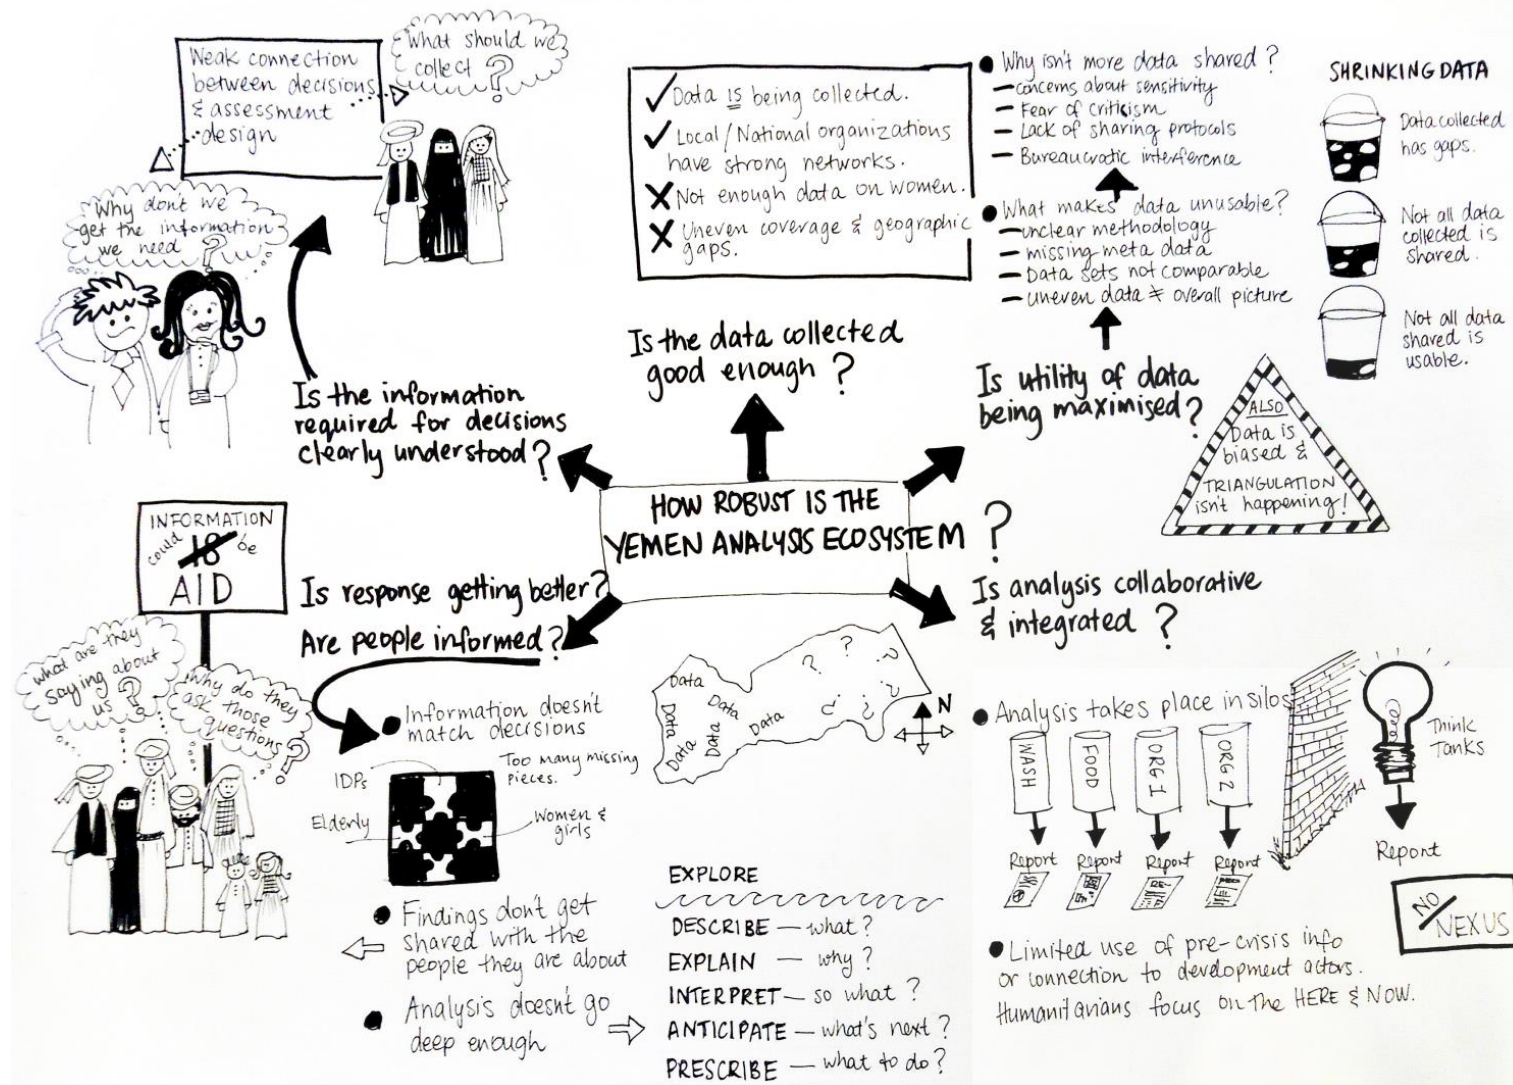 Weak connection
between decisions
& assessment
design
What should we
collect?
Why don't we
get the information
we need?
Is the information
required for decisions
clearly understood?
✓ Data is being collected.
✓ Local/National organizations
have strong networks.
✗ Not enough data on women.
✗ Uneven coverage & geographic
gaps.
Is the data collected
good enough?
● Why isn't more data shared?
– concerns about sensitivity
– Fear of criticism
– Lack of sharing protocols
– Bureaucratic interference
● What makes data unusable?
– unclear methodology
– missing meta data
– Data sets not comparable
– uneven data ≠ overall picture
Is utility of data
being maximised?
SHRINKING DATA
Data collected
has gaps.
Not all data
collected is
shared.
Not all data
shared is
usable.
ALSO
Data is
biased &
TRIANGULATION
isn't happening!
HOW ROBUST IS THE
YEMEN ANALYSIS ECOSYSTEM?
INFORMATION
could IS be
AID
Is response getting better?
Are people informed?
what are they
saying about
us?
Why do they
ask those
questions?
● Information doesn't
match decisions
Too many missing
pieces.
IDPs
Elderly
Women &
girls
● Findings don't get
shared with the
people they are about
● Analysis doesn't go
deep enough
Data
Data
Data
Data
Data
Data
? ? ? ? ? ?
N
EXPLORE
DESCRIBE – what?
EXPLAIN – why?
INTERPRET – so what?
ANTICIPATE – what's next?
PRESCRIBE – what to do?
Is analysis collaborative
& integrated?
● Analysis takes place in silos
WASH
FOOD
ORG 1
ORG 2
Report
Report
Report
Report
Think
Tanks
Report
NO
NEXUS
● Limited use of pre-crisis info
or connection to development actors.
Humanitarians focus on the HERE & NOW.